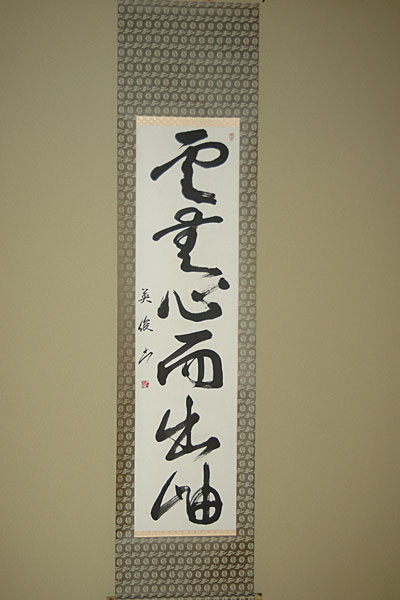 雲無心而出岫
英俊书